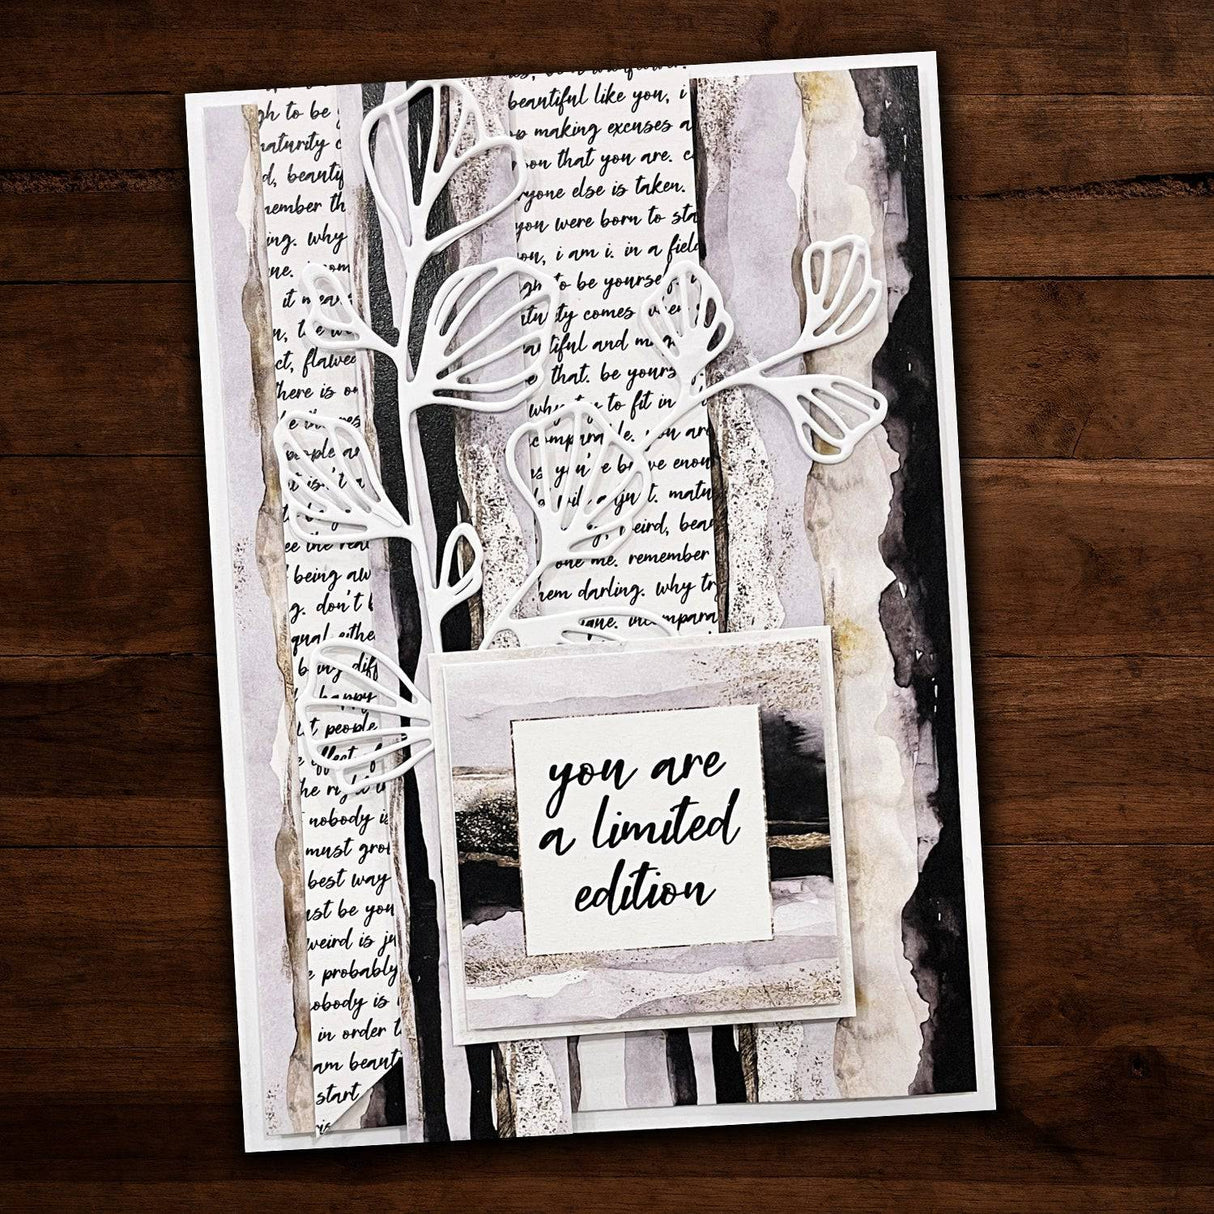 gh to be
maturity c
d, beautif
member th
ing. why
ne. incom
it means
n, the w
ct, flawed
there is on
e the res
people ar
t isn't a
ee the real
being aw
g. don't b
qual eithe
being diff
happy
st people
e effect of
the right
nobody is
must grow
best way
ust be you
weird is ju
e probably
nobody is
in order t
am beaut
start
beautiful like you, i
op making excuses a
son that you are. c
ryone else is taken.
you were born to sta
on, i am i. in a field
gh to be yourself.
aturity comes when
autiful and m
e that. be yours
why try to fit in
comparable. you are
us you're brave enou
matu
weird, beau
one me. remember
hem darling. why try
gane. incompara
you are
a limited
edition